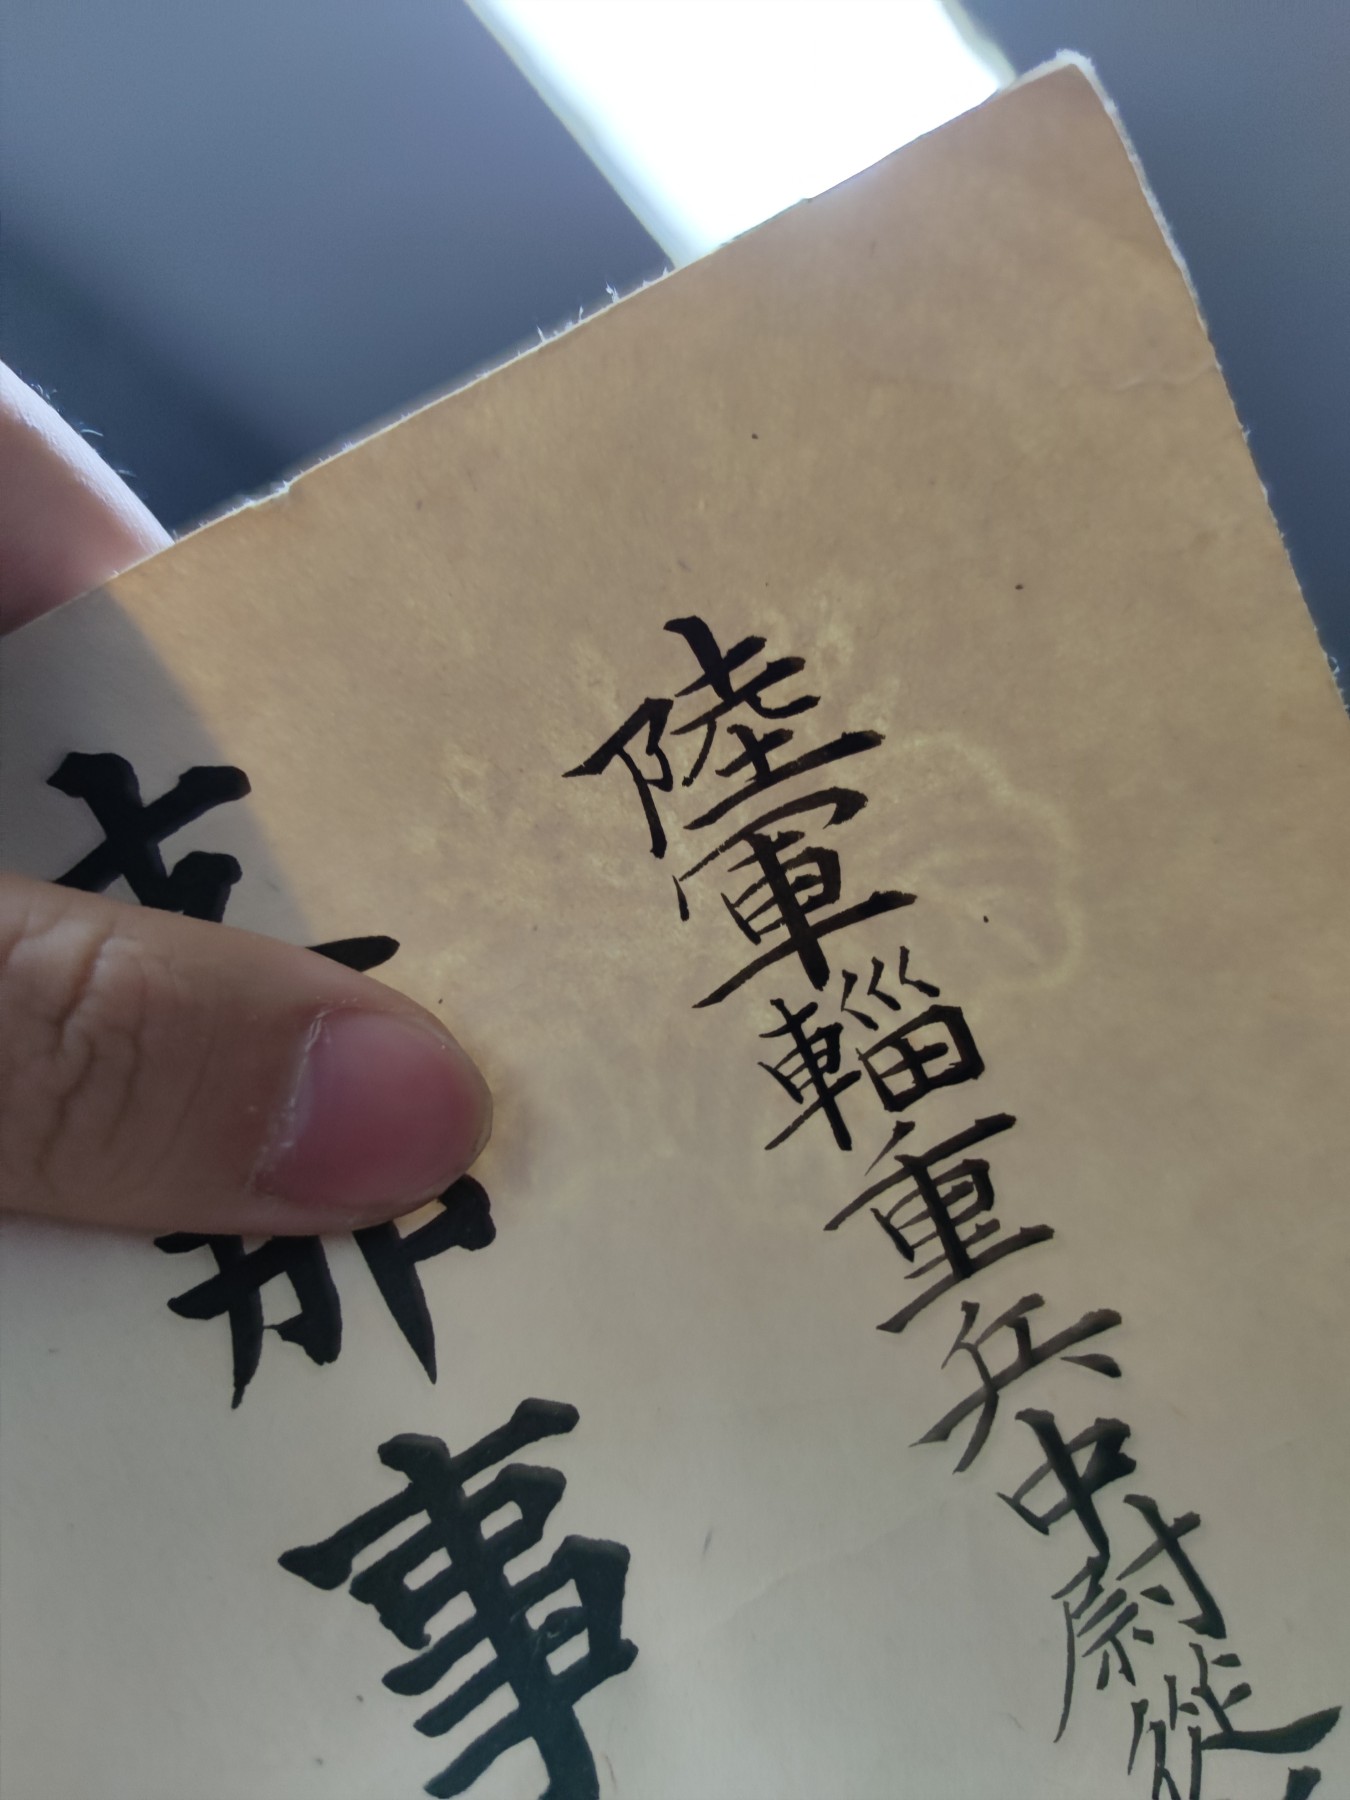 陸軍輜重兵中尉従
事